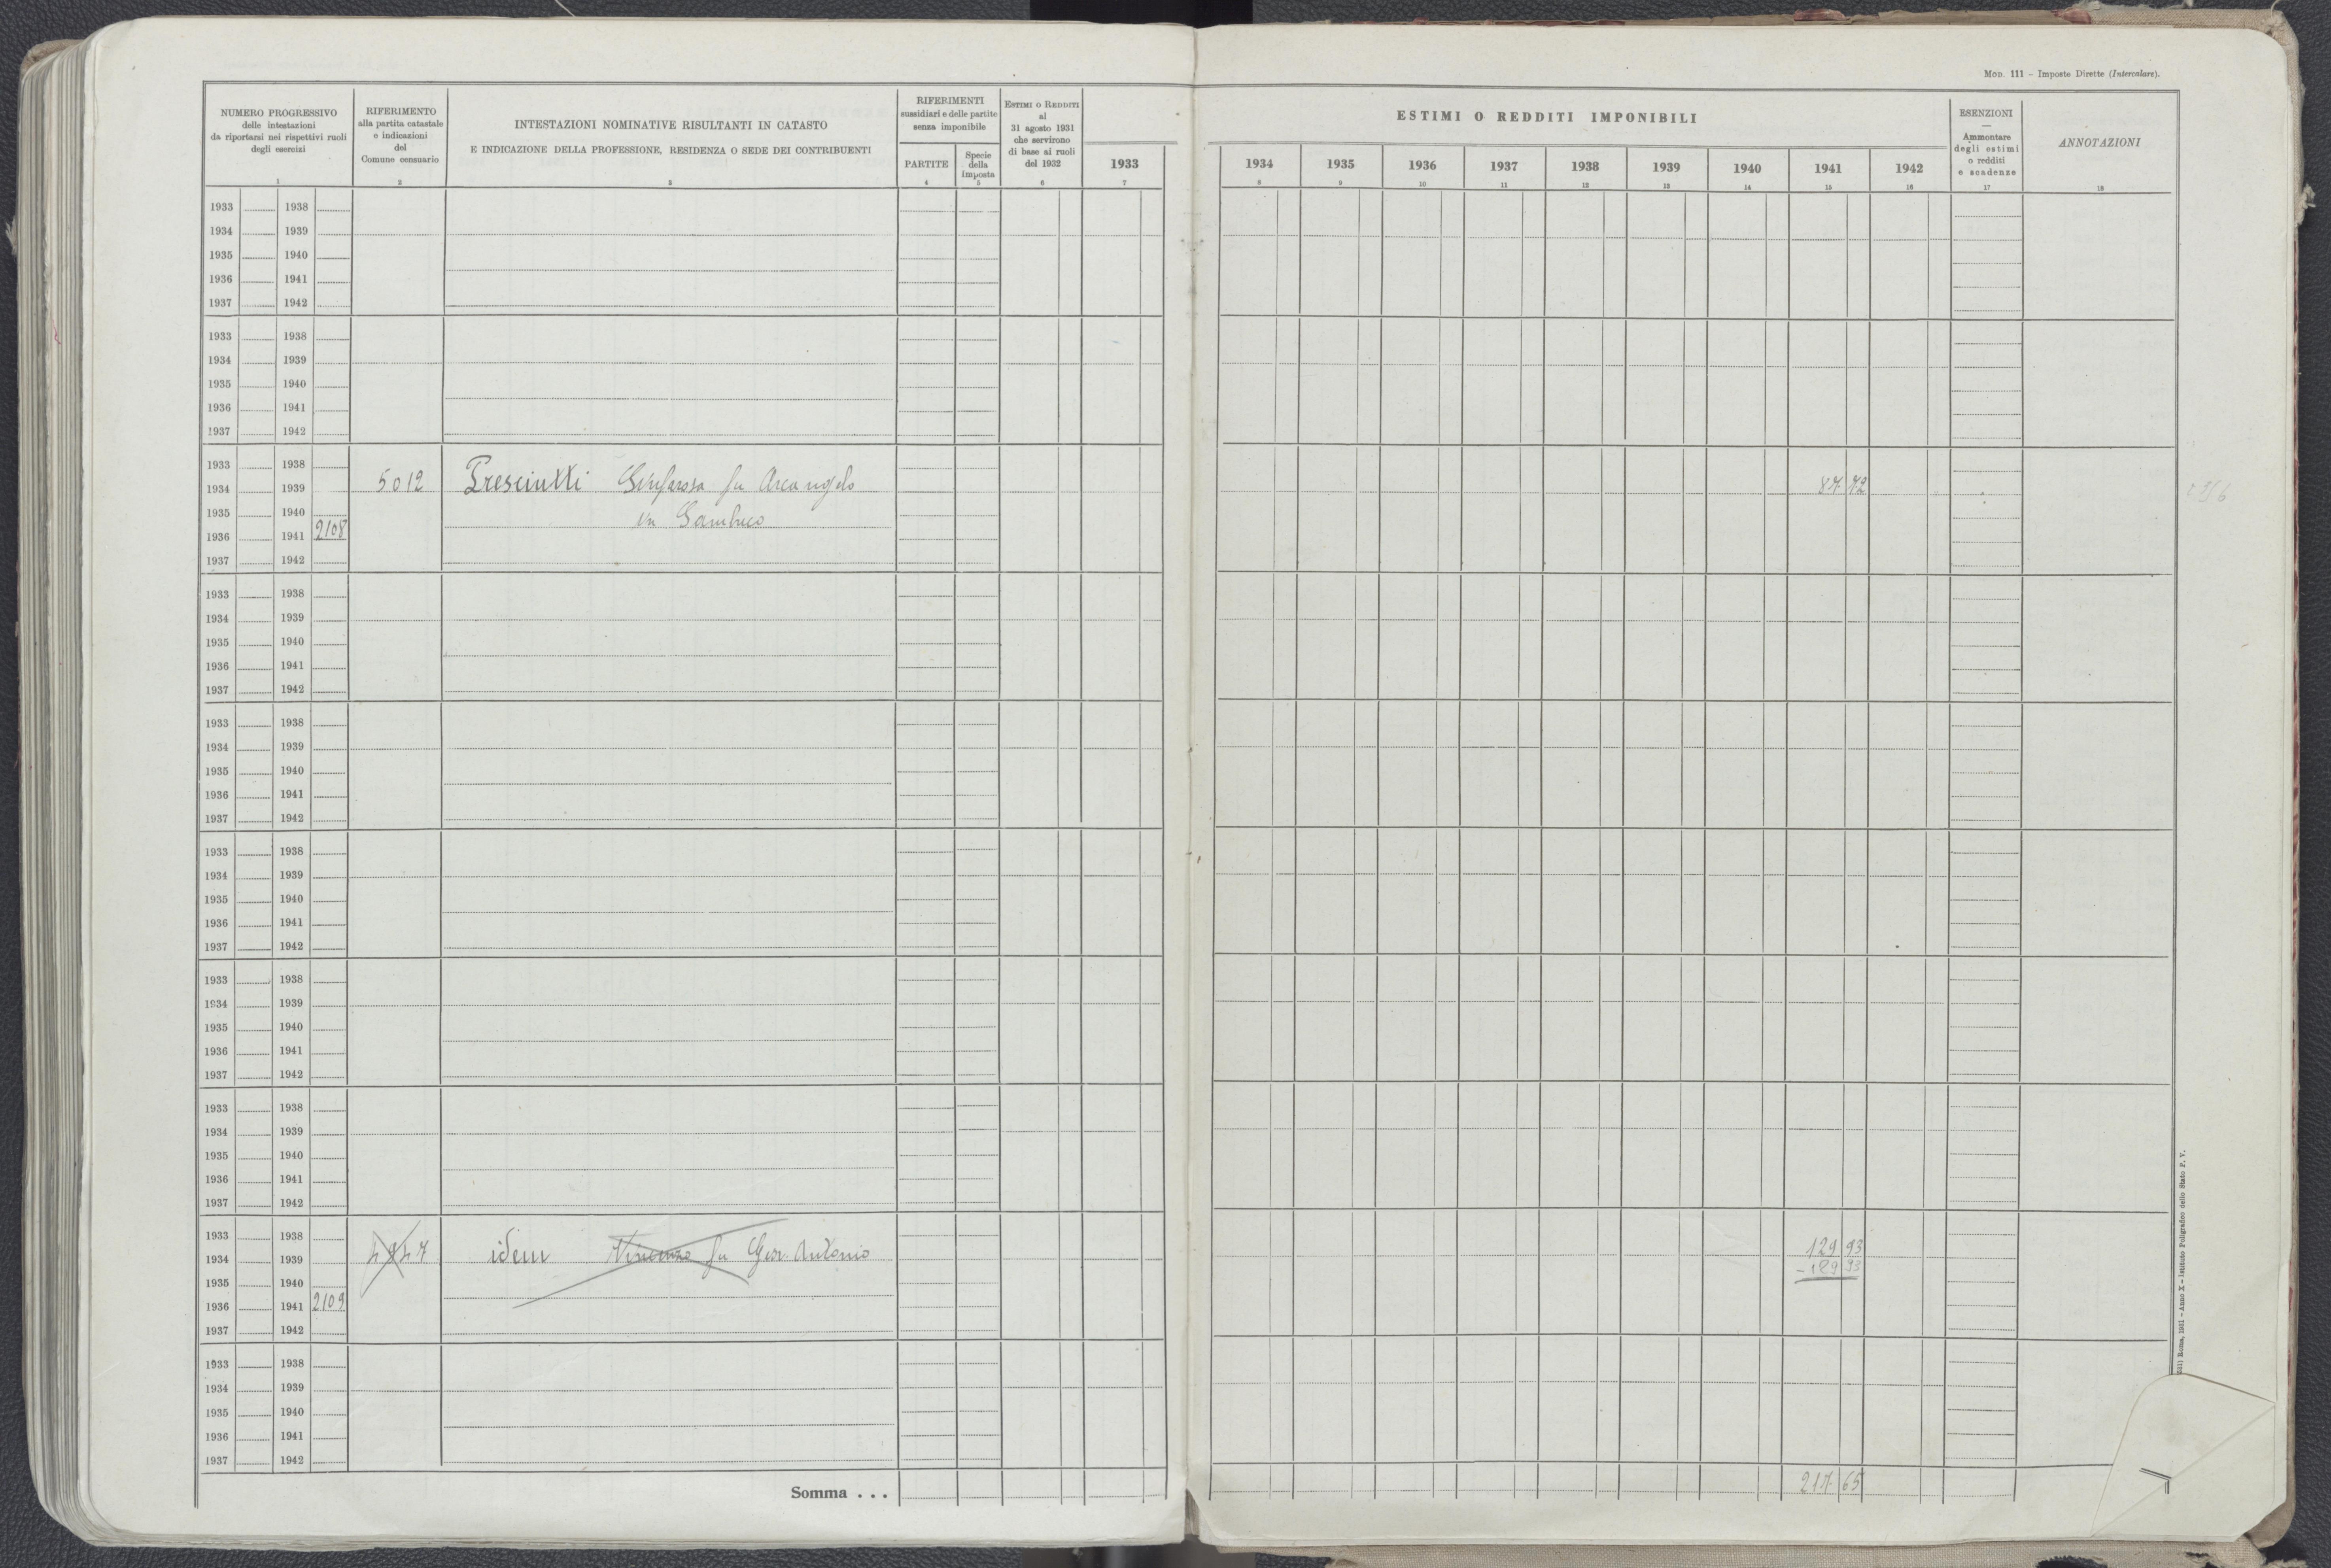 MOD. 111 - Imposte Dirette (Intercalare).
NUMERO PROGRESSIVO
delle intestazioni
da riportarsi nei rispettivi ruoli
degli esercizi
1
RIFERIMENTO
alla partita catastale
e indicazioni
del
Comune censuario
2
INTESTAZIONI NOMINATIVE RISULTANTI IN CATASTO
E INDICAZIONE DELLA PROFESSIONE, RESIDENZA O SEDE DEI CONTRIBUENTI
3
RIFERIMENTI
sussidiari e delle partite
senza imponibile
PARTITE
4
Specie
della
imposta
5
ESTIMI O REDDITI
al
31 agosto 1931
che servirono
di base ai ruoli
del 1932
6
1933
7
ESTIMI O REDDITI IMPONIBILI
1934 1935 1936 1937 1938 1939 1940 1941 1942
8 9 10 11 12 13 14 15 16
ESENZIONI
—
Ammontare
degli estimi
o redditi
e scadenze
17
ANNOTAZIONI
18
1933 1938
1934 1939
1935 1940
1936 1941
1937 1942
1933 1938
1934 1939
1935 1940
1936 1941
1937 1942
1933 1938
1934 1939 5012 Presciutti Sinforosa fu Arcangelo 87 72
1935 1940 in
1936 1941 2108
1937 1942
1933 1938
1934 1939
1935 1940
1936 1941
1937 1942
1933 1938
1934 1939
1935 1940
1936 1941
1937 1942
1933 1938
1934 1939
1935 1940
1936 1941
1937 1942
1933 1938
1934 1939
1935 1940
1936 1941
1937 1942
1933 1938
1934 1939
1935 1940
1936 1941
1937 1942
1933 1938
1934 1939 idem Vincenzo fu Gior. Antonio 129 93
1935 1940 - 129 93
1936 1941 2109
1937 1942
1933 1938
1934 1939
1935 1940
1936 1941
1937 1942
Somma . . . 217 65
Roma, 1931 - Anno X - Istituto Poligrafico dello Stato P. V.